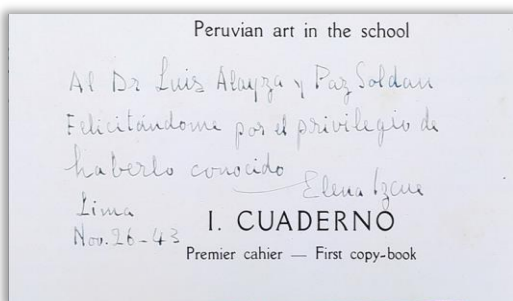 Peruvian art in the school
Al Dr Luis Alayza y Paz Soldan
Felicitándome por el privilegio de
haberlo conocido
Elena Izcue
Lima
Nov. 26-43
I. CUADERNO
Premier cahier — First copy-book